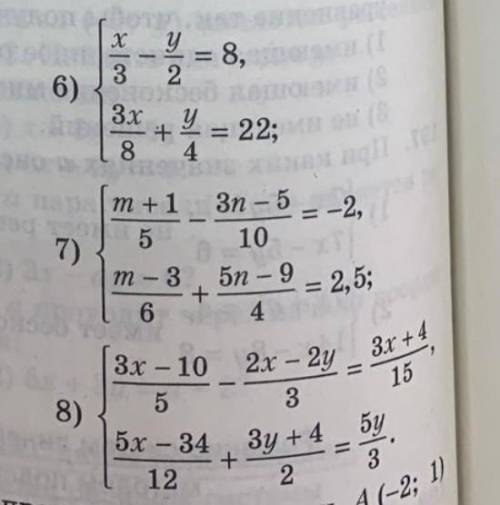 6) { x/3 − y/2 = 8,
3x/8 + y/4 = 22;
7) { (m + 1)/5 − (3n − 5)/10 = −2,
(m − 3)/6 + (5n − 9)/4 = 2,5;
8) { (3x − 10)/5 − (2x − 2y)/3 = (3x + 4)/15,
(5x − 34)/12 + (3y + 4)/2 = 5y/3.
A (−2; 1)